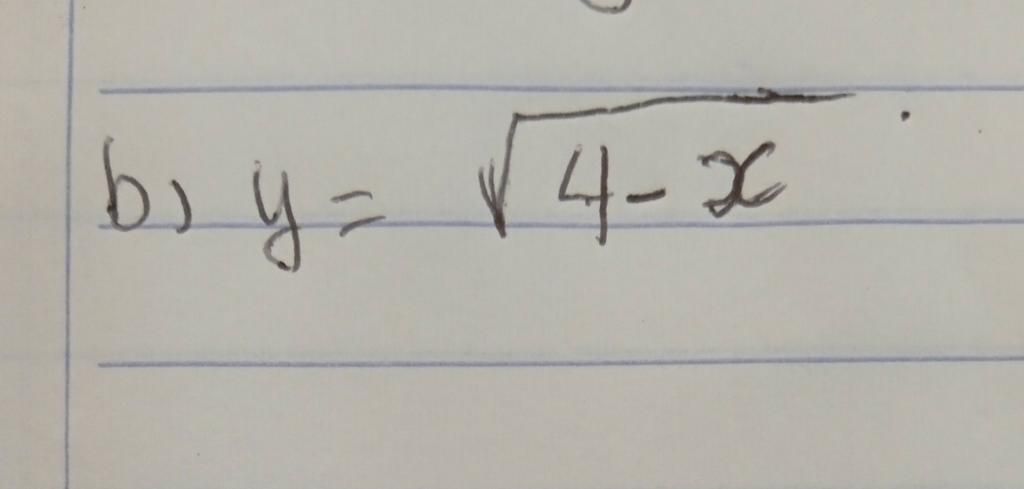 b) y = √4 - x